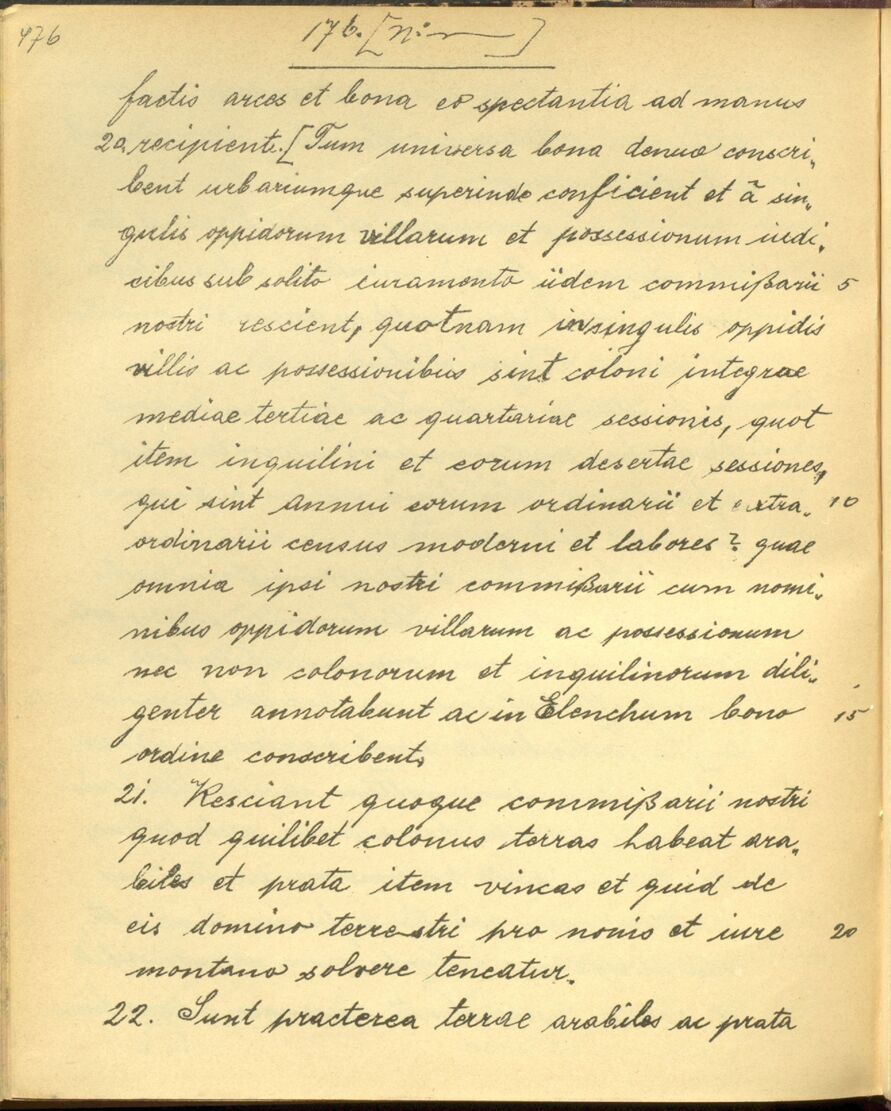 476
176. [No
factis arces et bona eo spectantia ad manus
20. recipient. [Tum universa bona denuo conscri„
bent urbariumque superinde conficient et ã sin„
gulis oppidorum villarum et possessionum iudi„
cibus sub solito iuramento iidem commißarii 5
nostri rescient, quotnam in singulis oppidis
villis ac possessionibus sint coloni integrae
mediae tertiae ac quartariae sessionis, quot
item inquilini et eorum desertae sessiones,
qui sint annui eorum ordinarii et extra„ 10
ordinarii census moderni et labores? quae
omnia ipsi nostri commißarii cum nomi„
nibus oppidorum villarum ac possessionum
nec non colonorum et inquilinorum dili„
genter annotabunt ac in Elenchum bono 15
ordine conscribent.
21. Resciant quoque commißarii nostri
quod quilibet colonus terras habeat ara„
biles et prata item vineas et quid de
eis domino terrestri pro nonis et iure 20
montano solvere teneatur.
22. Sunt praeterea terrae arabiles ac prata